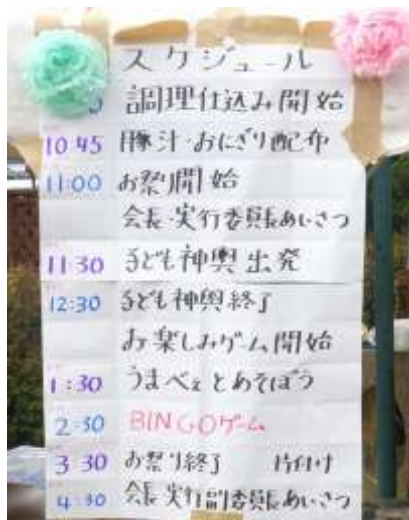 スケジュール
0 調理仕込み開始
10 45 豚汁・おにぎり配布
11:00 お祭り開始
会長・実行委員長あいさつ
11 30 子ども神輿出発
12:30 子ども神輿終了
お楽しみゲーム開始
1:30 うまべぇとあそぼう
2:30 BINGOゲーム
3 30 お祭り終了 片付け
4:30 会長 実行副委員長あいさつ